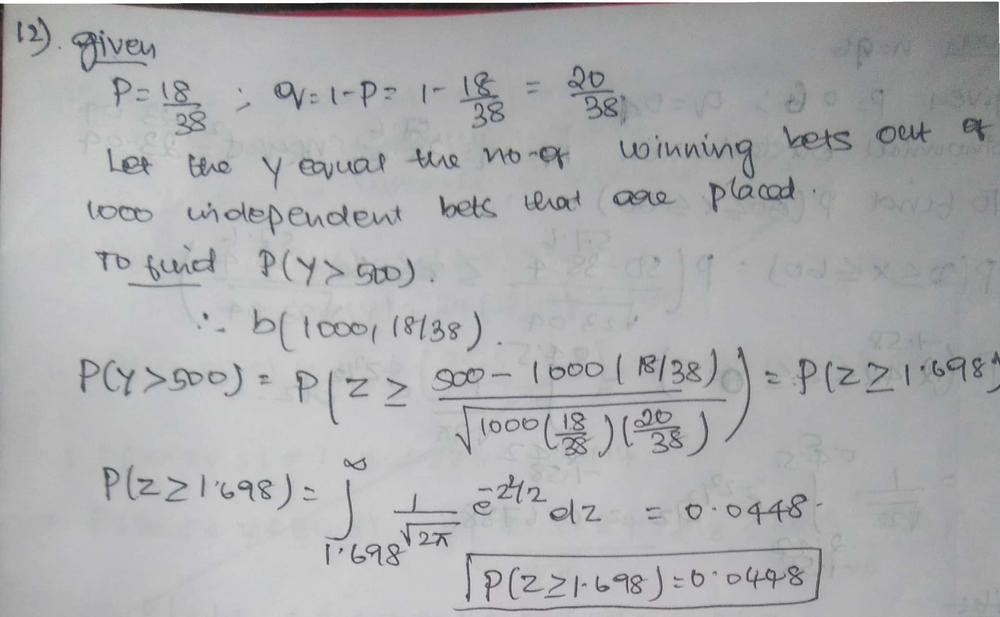 12). given
P = 18/38 ; q = 1-P = 1 - 18/38 = 20/38,
Let the Y equal the no-of winning bets out of
1000 independent bets that are placed.
To find P(Y > 500).
∴ b(1000, 18/38).
P(Y > 500) = P(Z ≥ (500 - 1000(18/38)) / √(1000(18/38)(20/38))) = P(Z ≥ 1.698)
P(Z ≥ 1.698) = ∫_{1.698}^{∞} 1/√2π e^{-z²/2} dz = 0.0448.
P(Z ≥ 1.698) = 0.0448